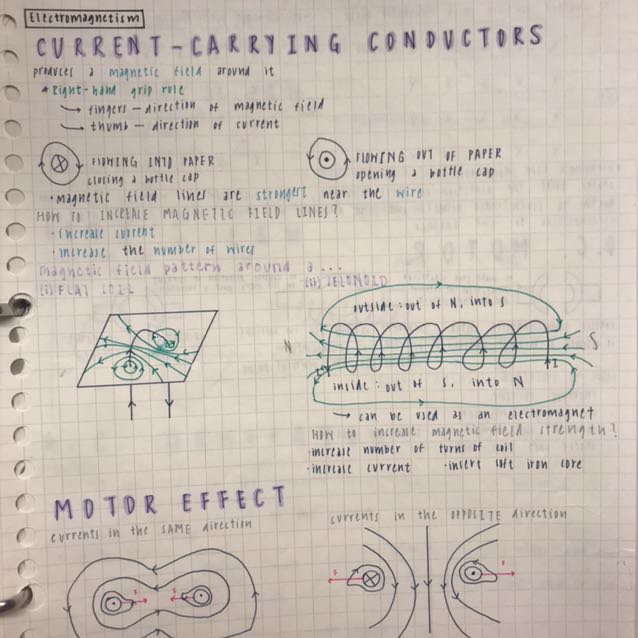 Electromagnetism
CURRENT-CARRYING CONDUCTORS
produces a magnetic field around it
* Right-hand grip rule
→ fingers - direction of magnetic field
→ thumb - direction of current
FLOWING INTO PAPER
closing a bottle cap
FLOWING OUT OF PAPER
opening a bottle cap
• magnetic field lines are strongest near the wire
HOW TO INCREASE MAGNETIC FIELD LINES?
• increase current
• increase the number of wires
Magnetic field pattern around a...
(i) FLAT COIL
(ii) SELONOID
outside : out of N, into S
N
S
I
inside : out of S, into N
→ can be used as an electromagnet
HOW to increase magnetic field strength?
• increase number of turns of coil
• increase current • insert soft iron core
MOTOR EFFECT
currents in the SAME direction
currents in the OPPOSITE direction
F F
F F